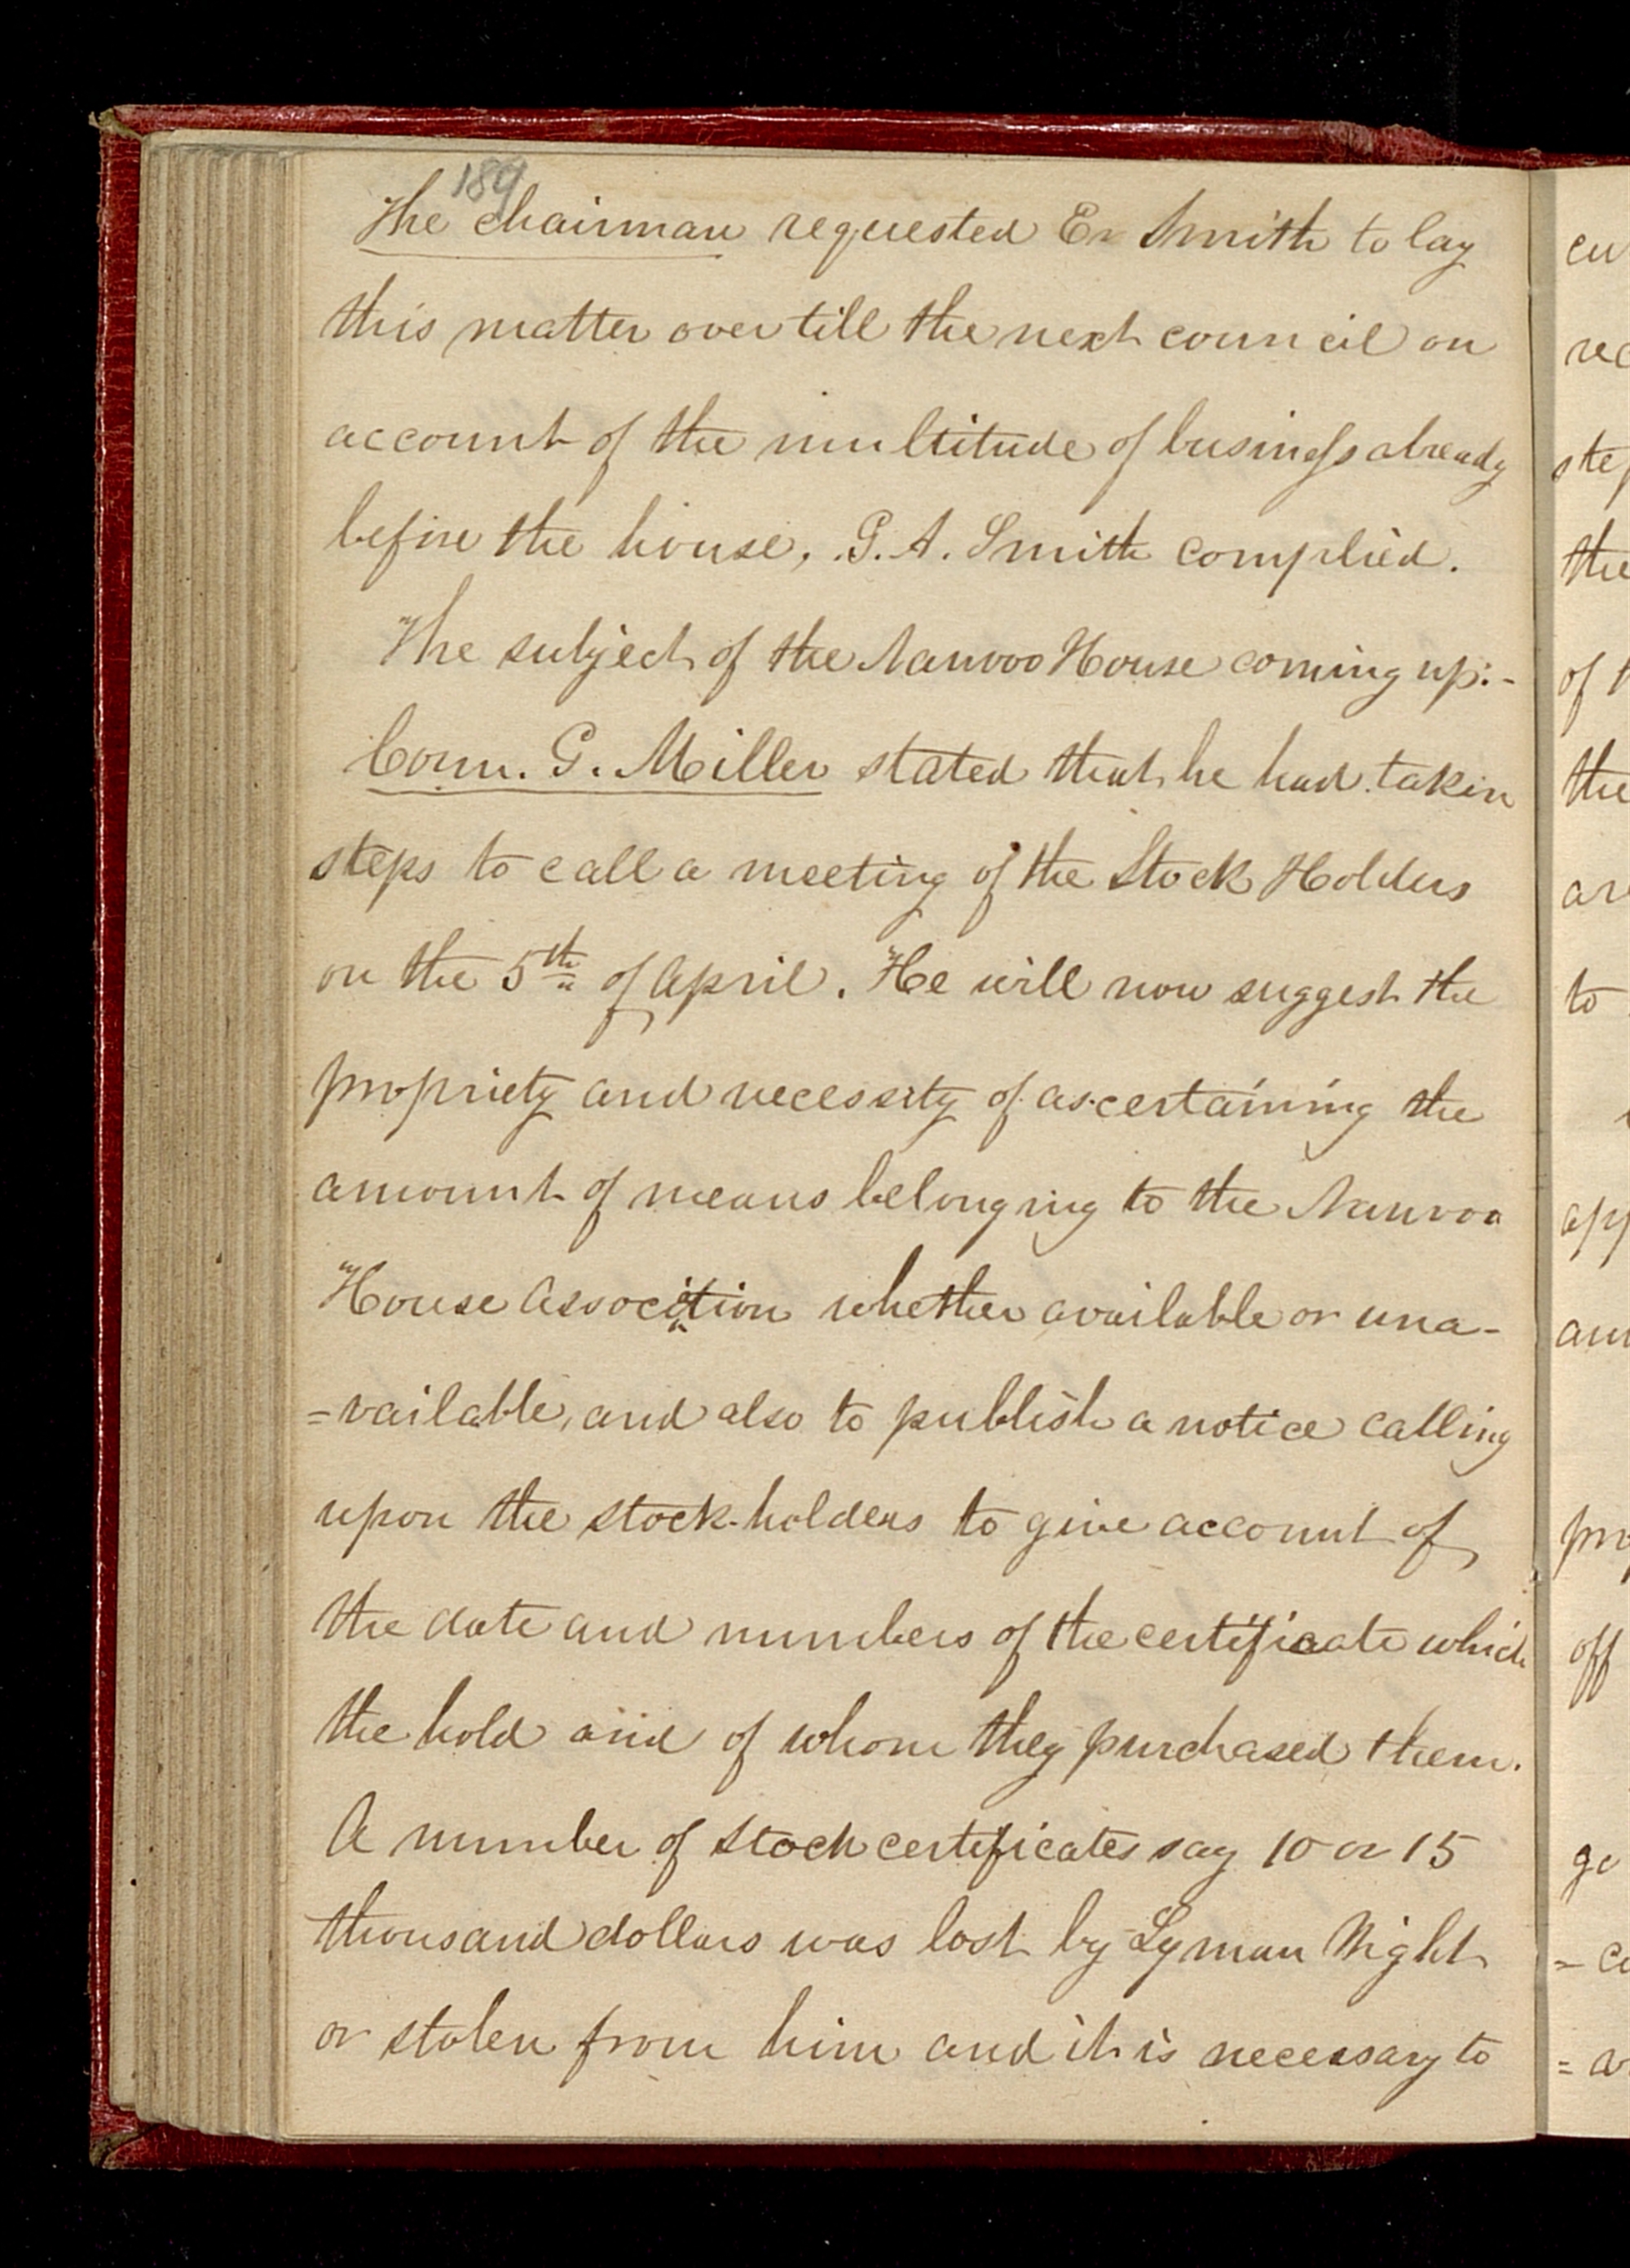 189
The chairman requested Er Smith to lay
this matter over till the next council on
account of the multitude of business already
before the house, G. A. Smith complied.
The subject of the Nauvoo House coming up:-
Coun. G. Miller stated that he had taken
steps to call a meeting of the Stock Holders
on the 5th of April. He will now suggest the
propriety and necessity of ascertaining the
amount of means belonging to the Nauvoo
House Association whether available or una-
=vailable, and also to publish a notice calling
upon the stock-holders to give account of
the date and numbers of the certificate which
the hold and of whom they purchased them.
A number of stock certificates say 10 or 15
thousand dollars was lost by Lyman Wight
or stolen from him and it is necessary to